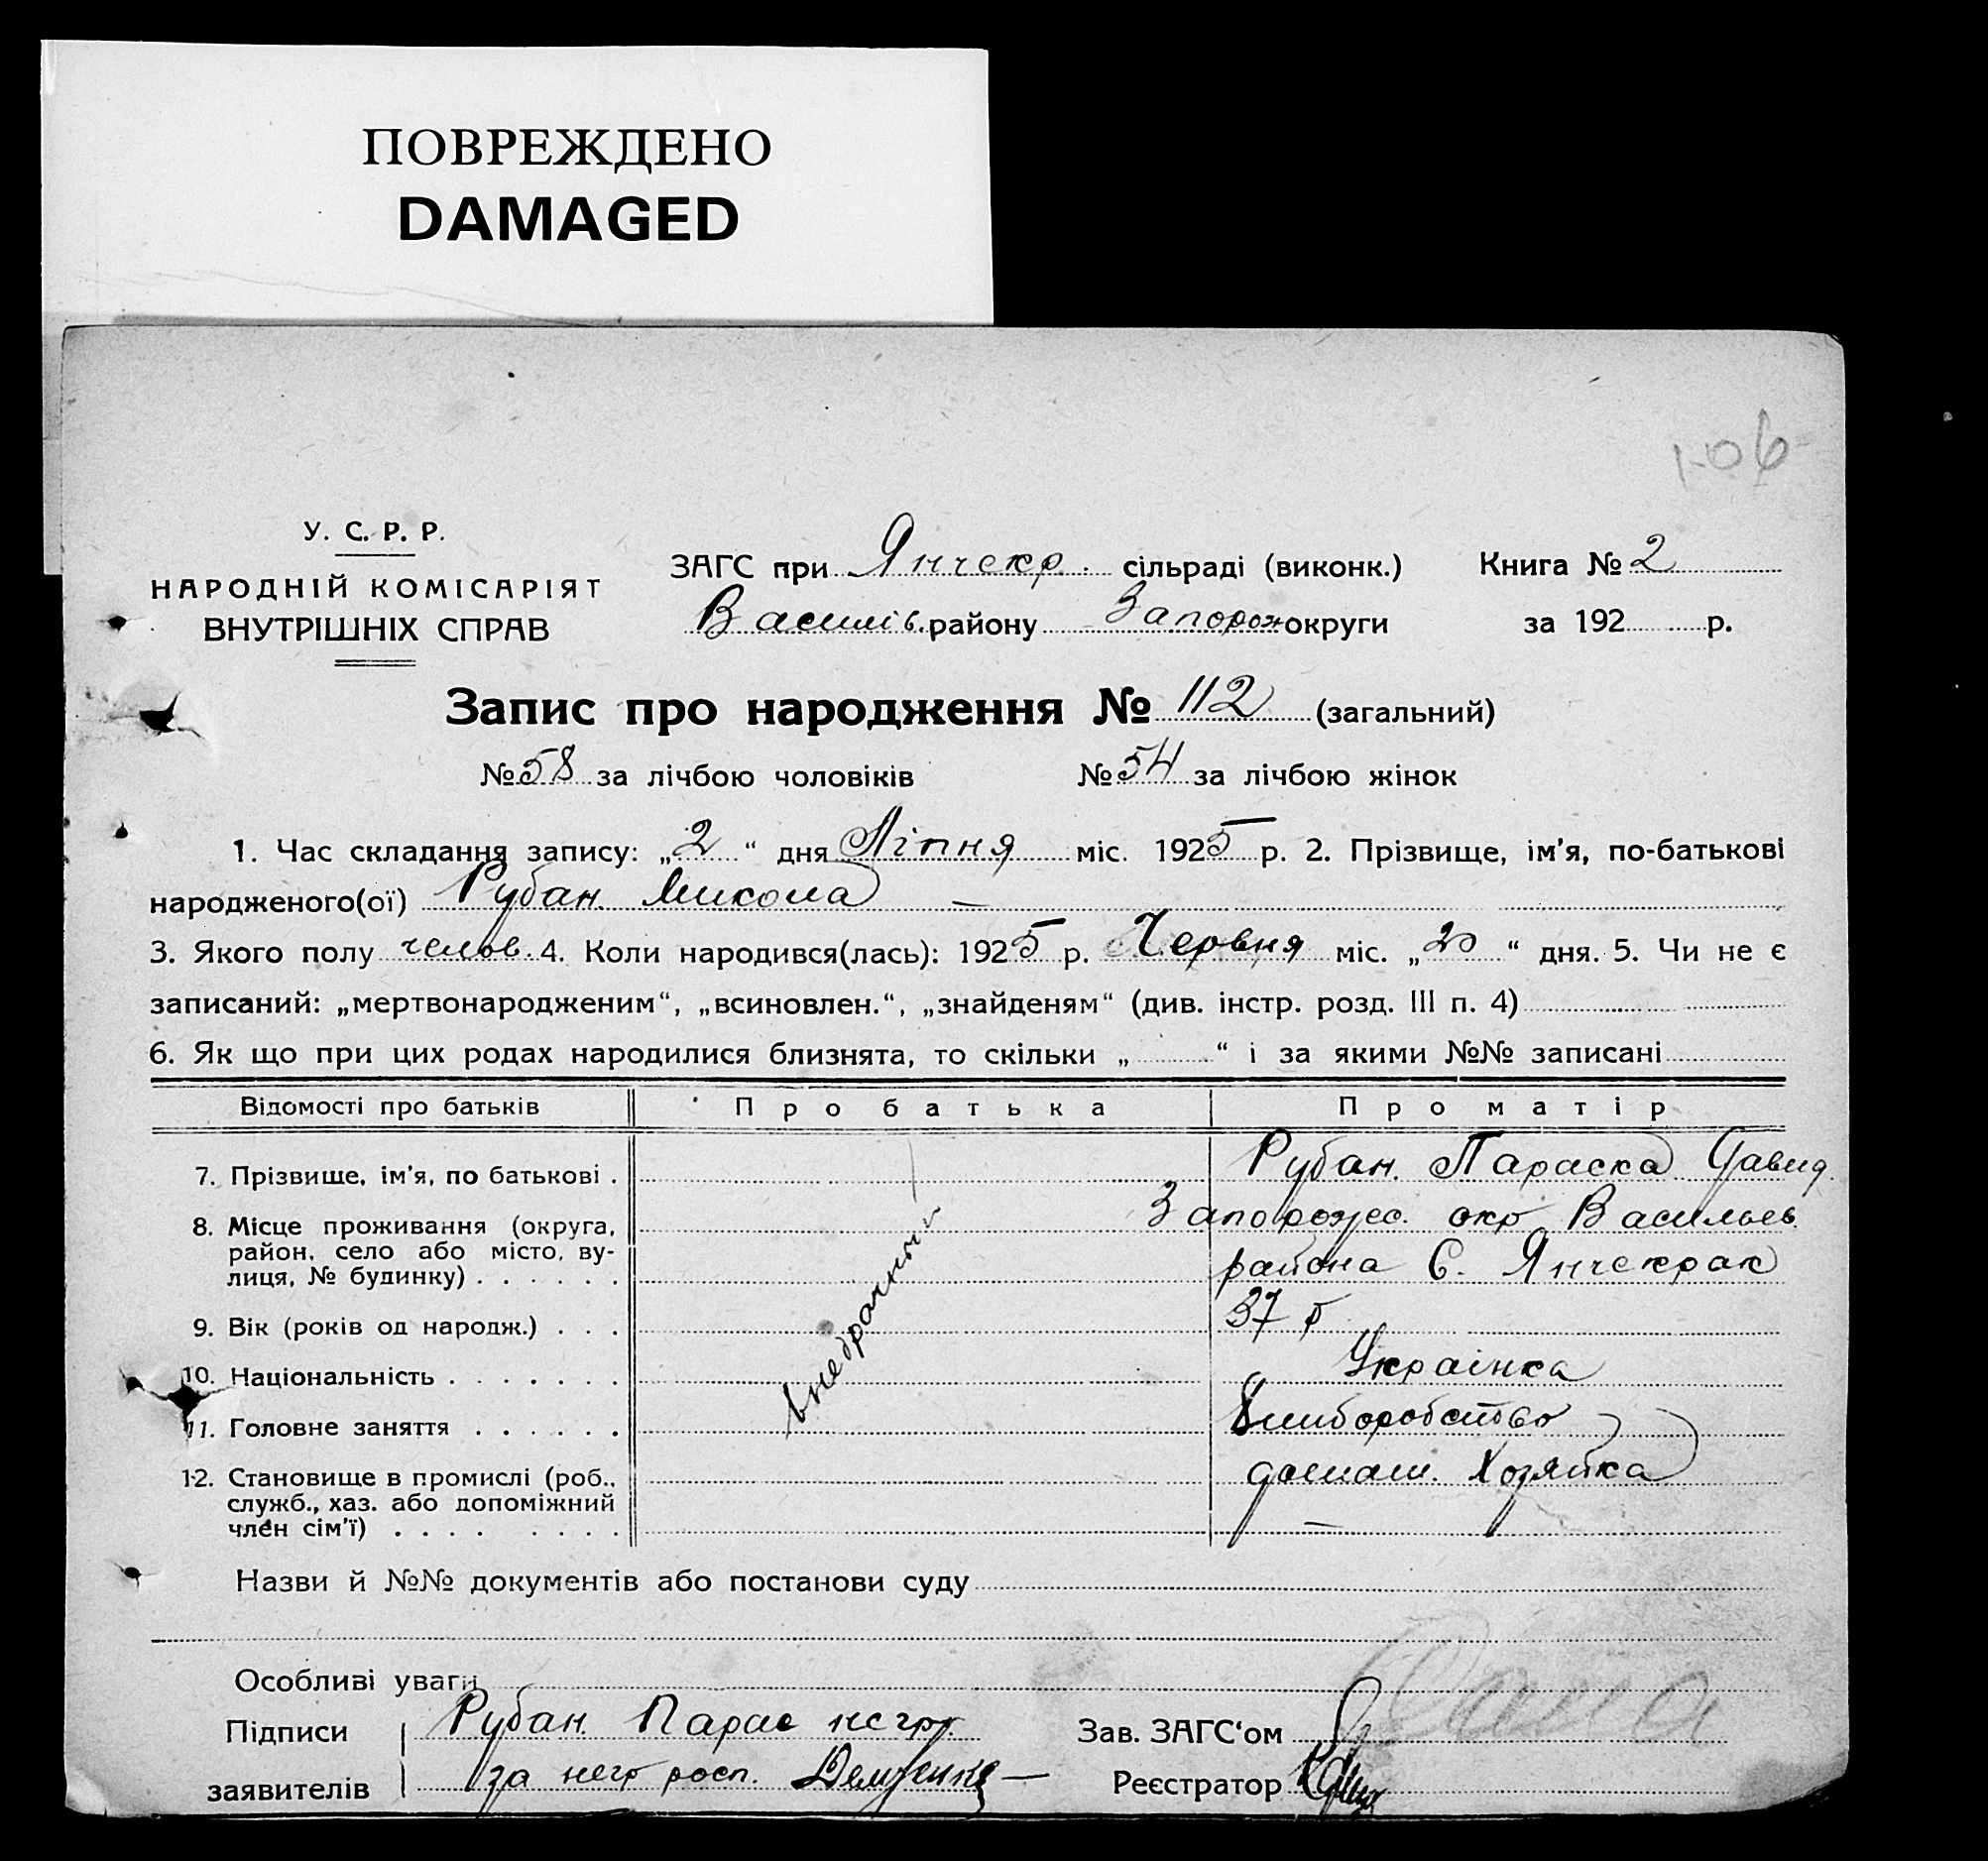 ПОВРЕЖДЕНО
DAMAGED
106
У. С. Р. Р.
НАРОДНІЙ КОМІСАРІЯТ
ВНУТРІШНІХ СПРАВ
ЗАГС при Янчекр. сільраді (виконк.) Книга № 2
Василів. району Запорож округи за 192 р.
Запис про народження № 112 (загальний)
№ 58 за лічбою чоловіків № 54 за лічбою жінок
1. Час складання запису: „2“ дня Ліпня міс. 1925 р. 2. Прізвище, ім’я, по-батькові
народженого(ої) Рубан. Микола —
3. Якого полу челов. 4. Коли народився(лась): 1925 р. Червня міс. „20“ дня. 5. Чи не є
записаний: „мертвонародженим“, „всиновлен.“, „знайденям“ (див. інстр. розд. III п. 4)
6. Як що при цих родах народилися близнята, то скільки „ “ і за якими №№ записані
Відомості про батьків Про батька Про матір
7. Прізвище, ім’я, по батькові . Рубан. Параска Давид.
8. Місце проживання (округа, Запорож. окр Васильев.
район, село або місто, ву-
лиця, № будинку) . . . . . . района С. Янчекрак
внебрачный
9. Вік (років од народж.) . . . 37 р
10. Національність . . . . . . . Украінка
11. Головне заняття . . . . . . Хлиборобство
12. Становище в промислі (роб., домаш. Хозяйка
служб., хаз. або допоміжний
член сім’ї) . . . . . . . . —
Назви й №№ документів або постанови суду
Особливі уваги
Підписи Рубан. Парас негр. Зав. ЗАГС‘ом
заявителів за него росп. Демченко — Реєстратор